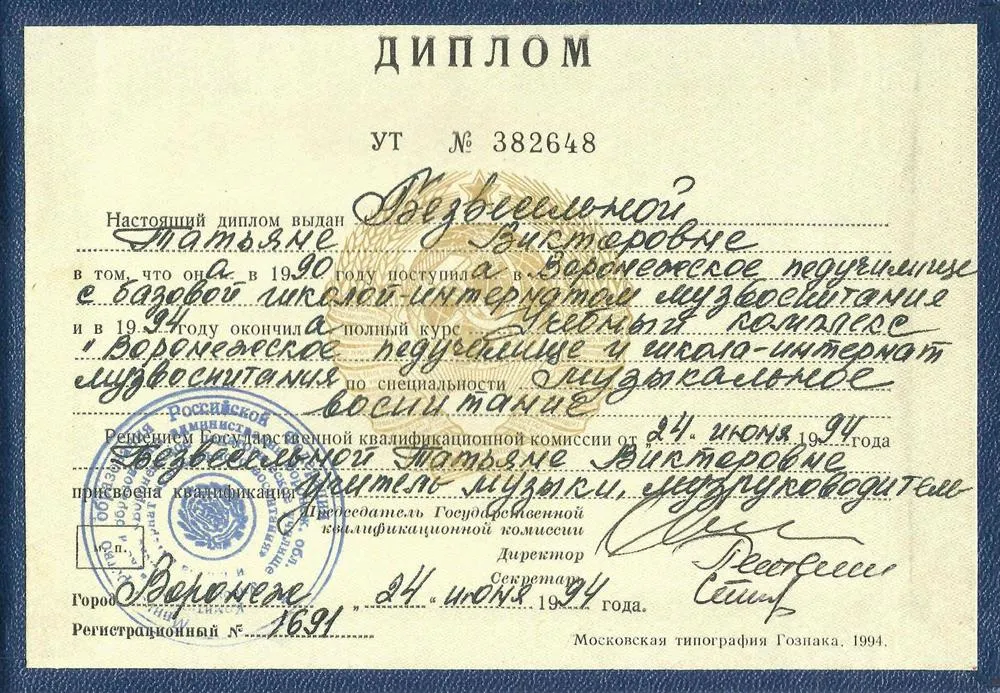 ДИПЛОМ
УТ № 382648
Настоящий диплом выдан Безвесильной
Татьяне Викторовне
в том, что она в 1990 году поступила в Воронежское педучилище
с базовой школой-интернатом музвоспитания
и в 1994 году окончила полный курс Учебный комплекс
"Воронежское педучилище и школа-интернат
музвоспитания по специальности музыкальное
воспитание
Решением Государственной квалификационной комиссии от "24" июня 1994 года
Безвесильной Татьяне Викторовне
присвоена квалификация учитель музыки, музруководитель
Председатель Государственной
квалификационной комиссии
Директор
Секретарь
М. П.
Город Воронеж, "24" июня 1994 года.
Регистрационный № 1691
Московская типография Гознака. 1994.
образования Российской